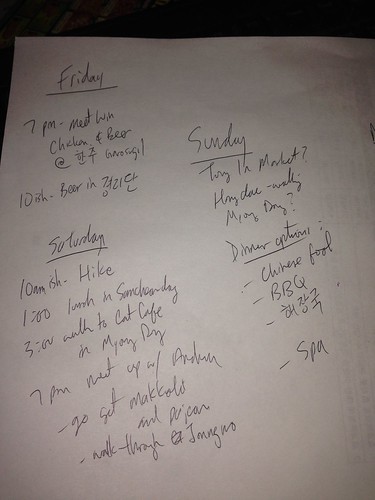 Friday
7 pm - meet Win
Chicken & Beer
@ 한주 Garosugil
10ish - Beer in 경리단
Saturday
10amish - Hike
1:00 lunch in Samcheondong
3:00 walk to Cat Cafe
in Myong Dong
7 pm meet up w/ Andrew
- go get makkoli
and pajeon
- walk-through Jongno
Sunday
Tong In Market?
Hongdae - walk
Myong Dong?
Dinner options:
- Chinese food
- BBQ
- 해장국
- Spa